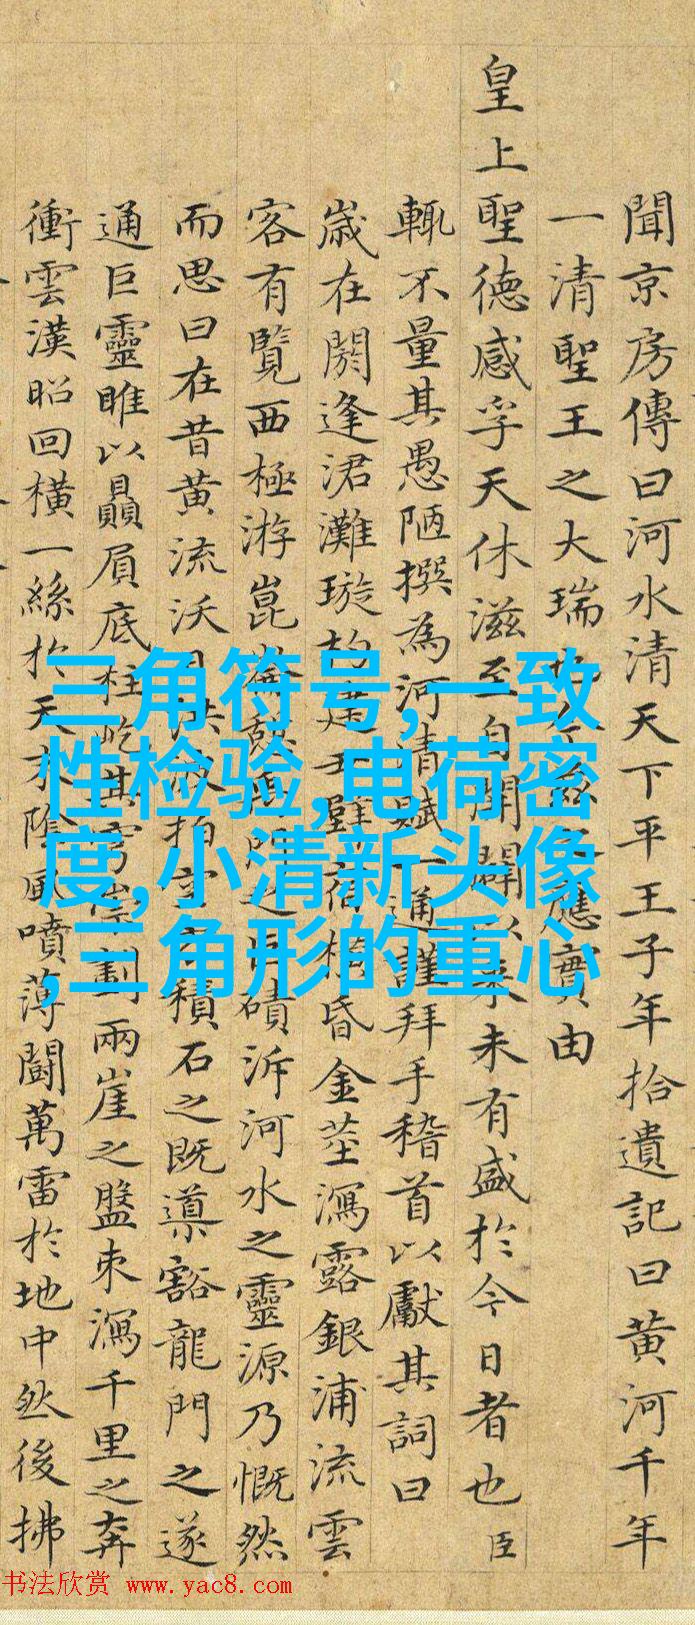 聞京房傳曰河水清天下平王子年拾遺記曰黄河千年
一清聖王之大瑞也 應實由
皇上聖德感孚天休滋至自開闢以來未有盛於今日者也臣
輒不量其愚陋撰為河清賦一通謹拜手稽首以獻其詞曰
歲在閼逢涒灘璇杓建 昏金莖瀉露銀浦流雲
客有覽西極游崑崙 磧泝河水之靈源乃慨然
而思曰在昔黄流沃日洪波拍空 積石之既導豁龍門之遂
通巨靈睢以贔屓底柱屹其穹崇劃兩崖之盤束瀉千里之奔
衝雲漢昭回橫一絲於天水陰風噴薄鬭萬雷於地中然後拂
三角符号,一致
性检验,电荷密
度,小清新头像
,三角形的重心
书法欣赏 www.yac8.com